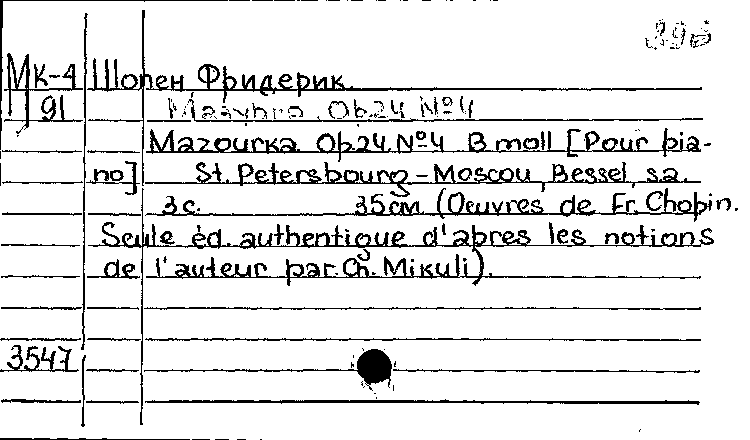 МК-4 Шопен Фридерик.
91 Мазурка. Op.24 №4
Mazourka. Op.24.№4 B moll [Pour pia-
no] St. Petersbourg-Moscou, Bessel, s.a.
3с. 35см (Oeuvres de Fr. Chopin.
Seule èd. authentique d'apres les notions
de l'auteur par. Ch. Mikuli).
3547